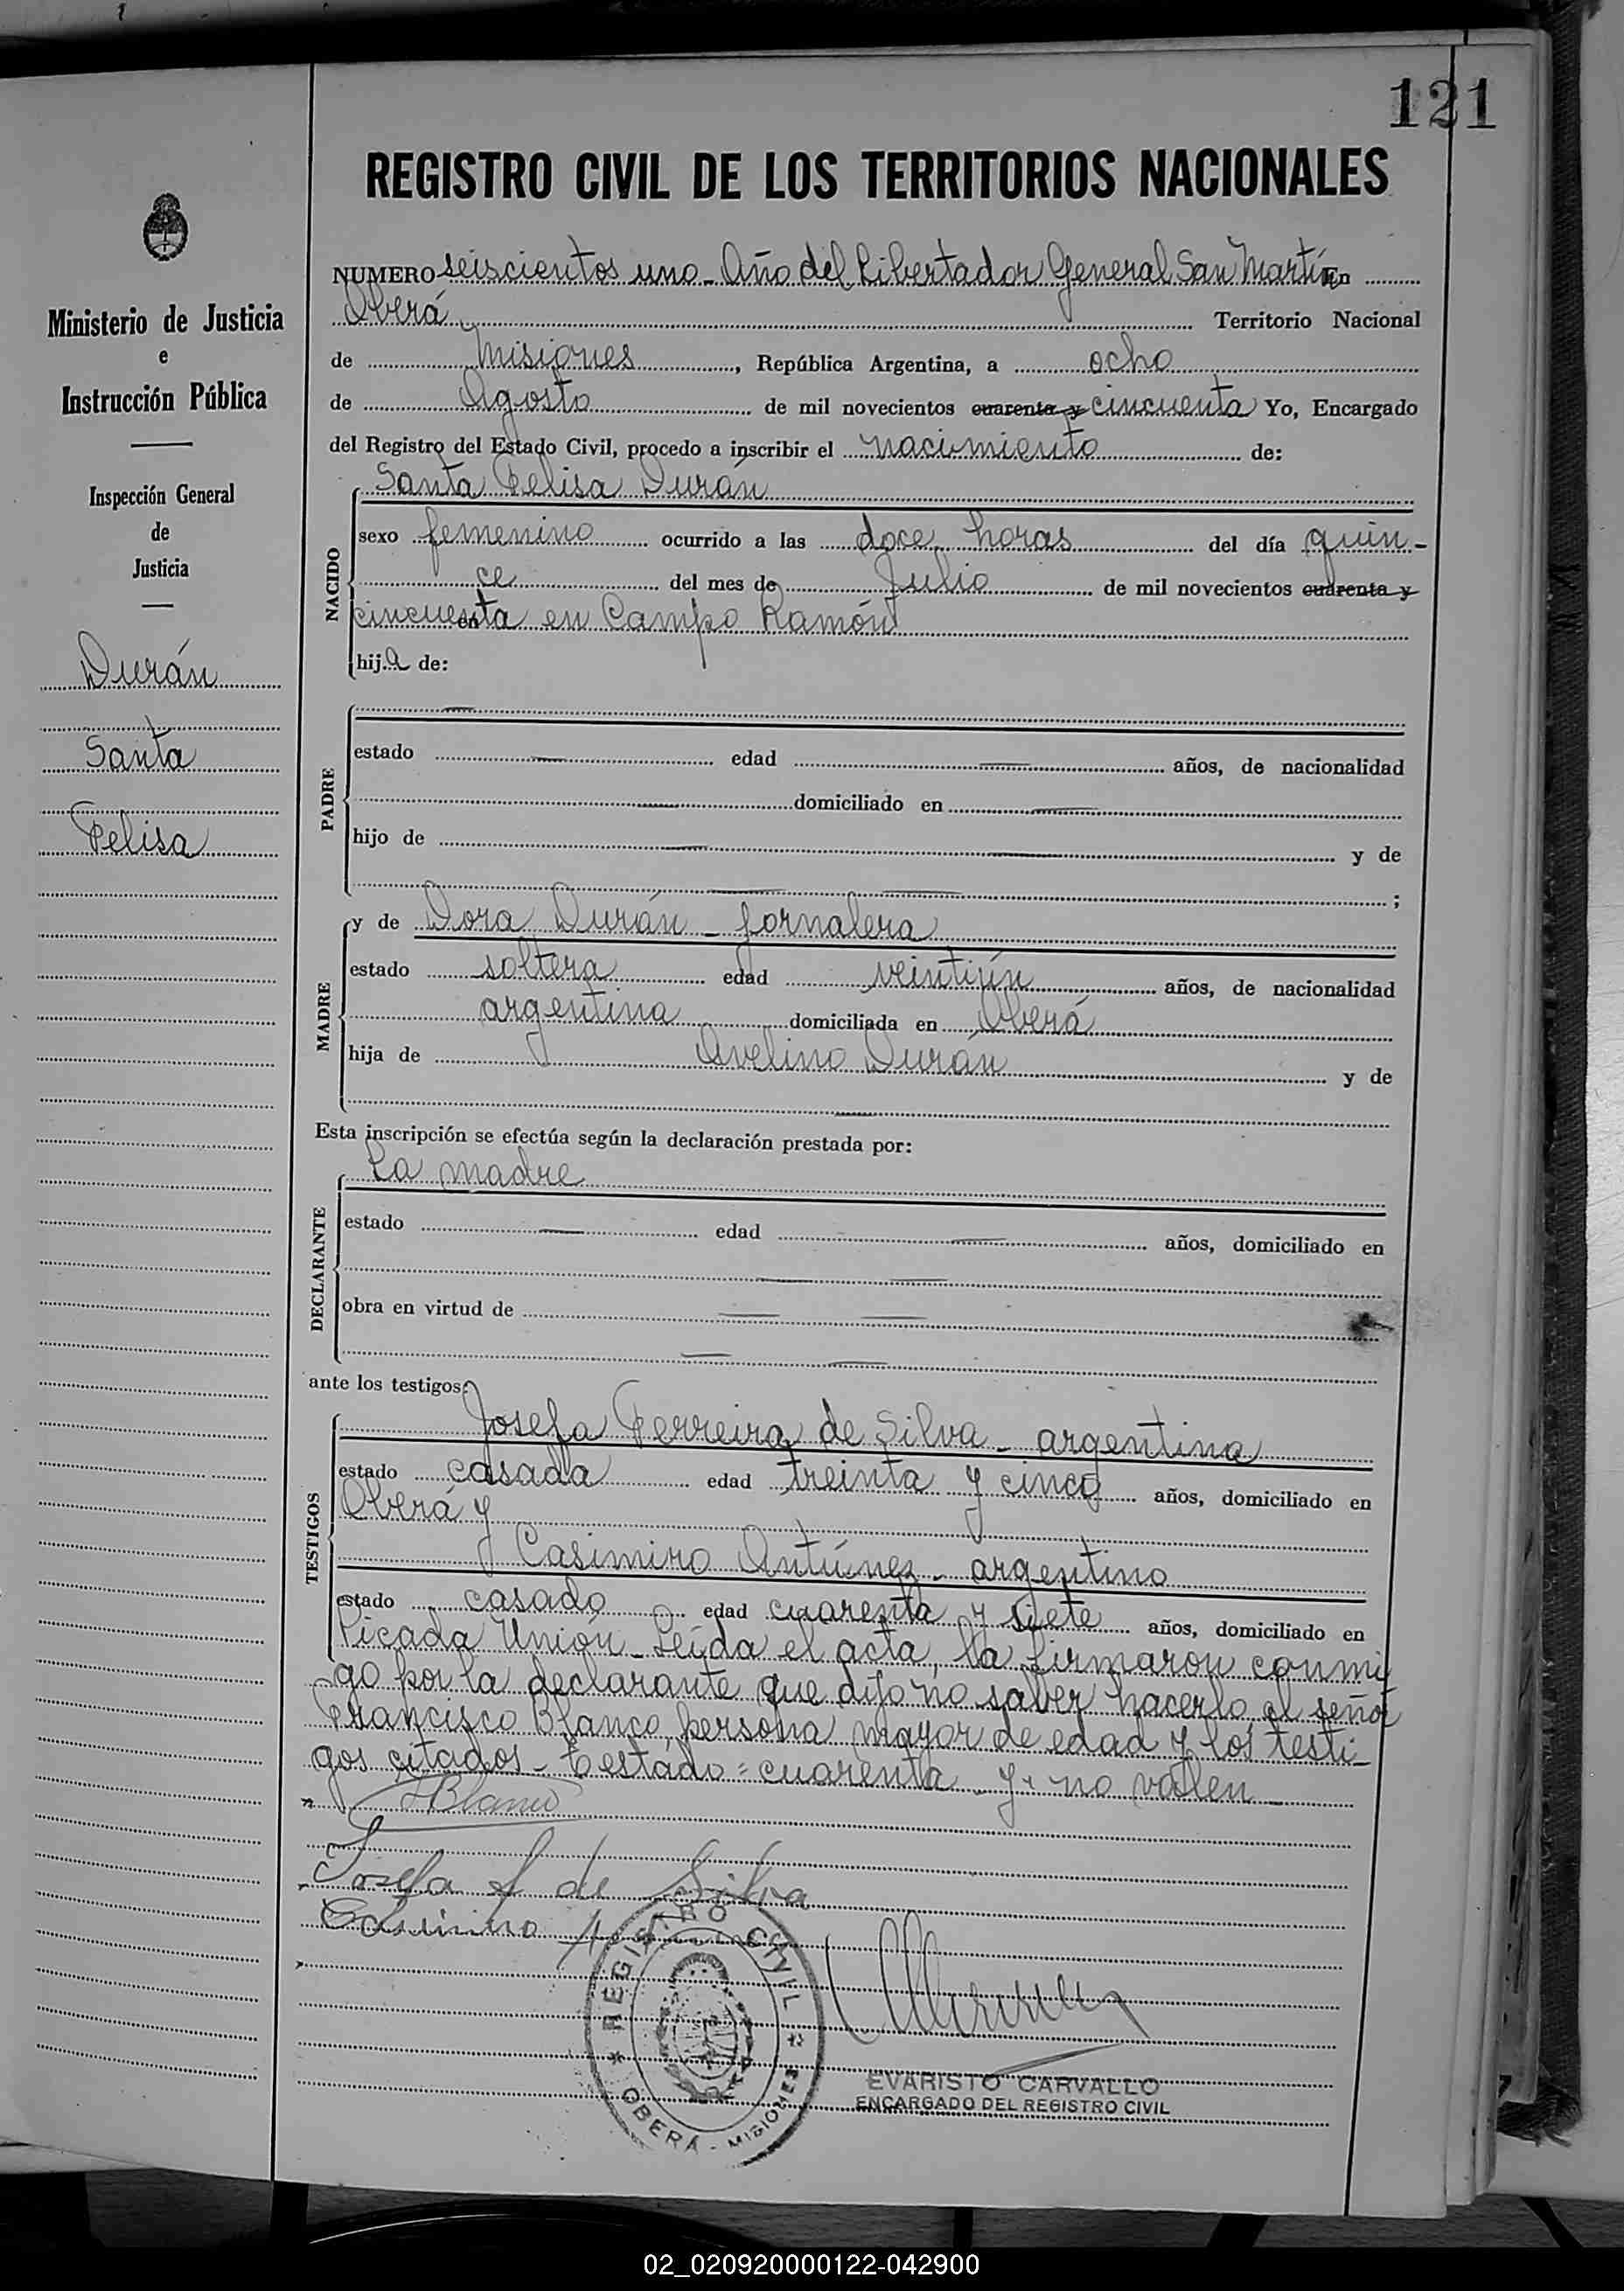 121
REGISTRO CIVIL DE LOS TERRITORIOS NACIONALES
Ministerio de Justicia
e
Instrucción Pública
Inspección General
de
Justicia
Durán
Santa
Felisa
NUMERO seiscientos uno - Año del Libertador General San Martín En
Oberá Territorio Nacional
de Misiones, República Argentina, a ocho
de Agosto de mil novecientos cuarenta y cincuenta Yo, Encargado
del Registro del Estado Civil, procedo a inscribir el nacimiento de:
NACIDO
Santa Felisa Durán
sexo femenino ocurrido a las doce horas del día quin-
ce del mes de Julio de mil novecientos cuarenta y
cincuenta en Campo Ramón
hija de:
PADRE
estado edad años, de nacionalidad
domiciliado en
hijo de y de
;
MADRE
y de Dora Durán - jornalera
estado soltera edad veintiún años, de nacionalidad
argentina domiciliada en Oberá
hija de Avelino Durán y de
Esta inscripción se efectúa según la declaración prestada por:
DECLARANTE
La madre
estado edad años, domiciliado en
obra en virtud de
ante los testigos:
TESTIGOS
Josefa Ferreira de Silva - argentina
estado casada edad treinta y cinco años, domiciliado en
Oberá y
Casimiro Antúnez - argentino
estado casado edad cuarenta y siete años, domiciliado en
Picada Unión - Leída el acta, la firmaron conmi
go por la declarante que dijo no saber hacerlo, el señor
Francisco Blanco, persona mayor de edad y los testi-
gos citados - Testado = cuarenta y = no valen -
FBlanco
Josefa F de Silva
Casimiro
REGISTRO CIVIL
OBERÁ - MISIONES
EVARISTO CARVALLO
ENCARGADO DEL REGISTRO CIVIL
02_020920000122-042900